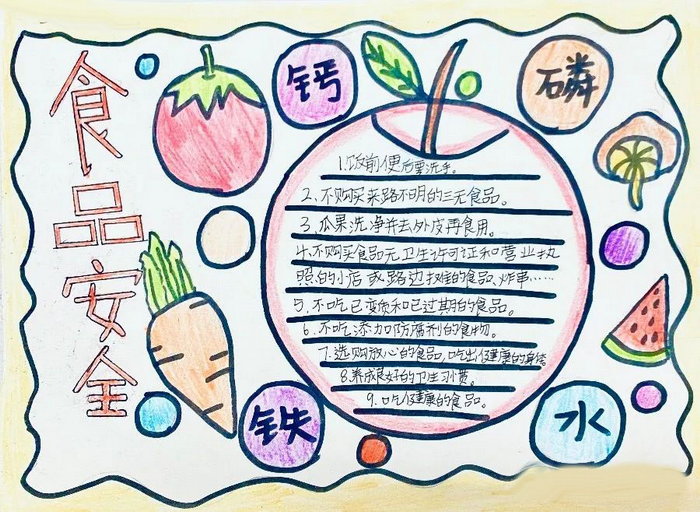 食品安全
钙
磷
1.饭前便后要洗手。
2、不购买来路不明的三无食品。
3、瓜果洗净并去外皮再食用。
4、不购买食品无卫生许可证和营业执
照的小店或路边摊的食品、炸串……
5、不吃已变质和已过期的食品。
6、不吃添加防腐剂的食物。
7、选购放心的食品,吃出健康的身体
8、养成良好的卫生习惯。
9、吃健康的食品。
铁
水